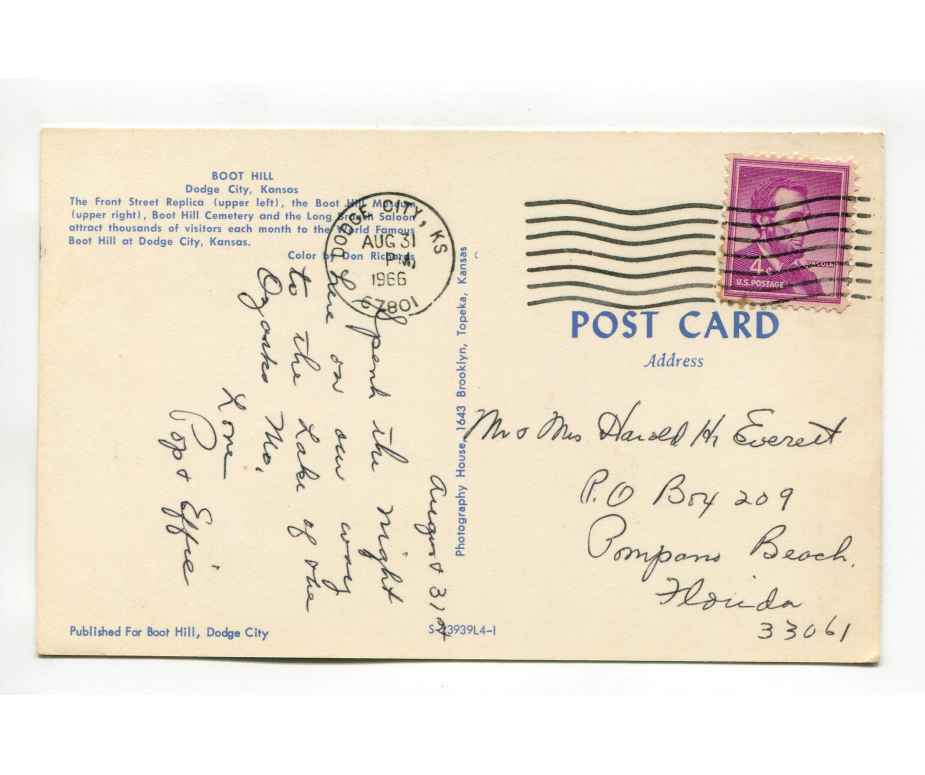 BOOT HILL
Dodge City, Kansas
The Front Street Replica (upper left), the Boot Hill Museum
(upper right), Boot Hill Cemetery and the Long Branch Saloon
attract thousands of visitors each month to the World Famous
Boot Hill at Dodge City, Kansas.
Color by Don Richards
DODGE CITY, KS
AUG 31
PM
1966
67801
August 31st
Spent the night
here on our way
to the Lake of the
Ozarks Mo.
Love
Pop & Effie
Published For Boot Hill, Dodge City
Photography House, 1643 Brooklyn, Topeka, Kansas
S-23939L4-1
LINCOLN
4¢
U.S. POSTAGE
POST CARD
Address
Mr & Mrs Harold H. Everett
P.O Box 209
Pompano Beach.
Florida
33061